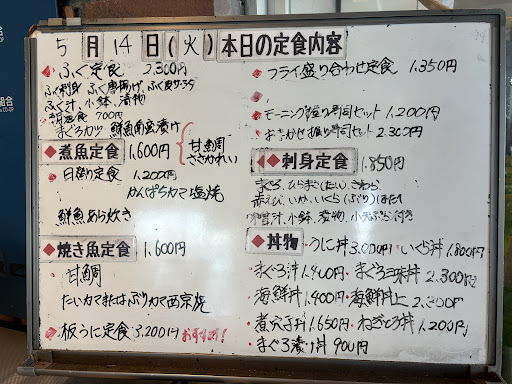 5月14日(火)本日の定食内容
ふぐ定食 2,300円
ふぐ刺身 ふぐ唐揚げ、ふぐ皮ポン酢
ふぐ汁、小鉢、漬物
朝定食 700円
まぐろカツ 鮮魚南蛮漬け
◆煮魚定食 1,600円 甘鯛 ささかれい
・日替り定食 1,200円
かんぱちカマ塩焼
鮮魚あら炊き
◆焼き魚定食 1,600円
甘鯛
たいカマまたはぶりカマ西京焼
板うに定食 3,200円 おすすめ!
フライ盛り合わせ定食 1,350円
モーニング握り寿司セット 1,200円
おまかせ握り寿司セット 2,300円
◆刺身定食 1,850円
まぐろ、ひらまさ、たい、さわら
赤えび、いか、いくら(ぶり)ほたて
味噌汁、小鉢、漬物、小天ぷら付き
◆丼物 ・うに丼3,000円・いくら丼1,800円
・まぐろ丼1,400円・まぐろ三昧丼2,300円
・海鮮丼1,400円・海鮮丼上2,300円
・煮穴子丼1,650円・ねぎとろ丼1,200円
・まぐろ漬け丼900円